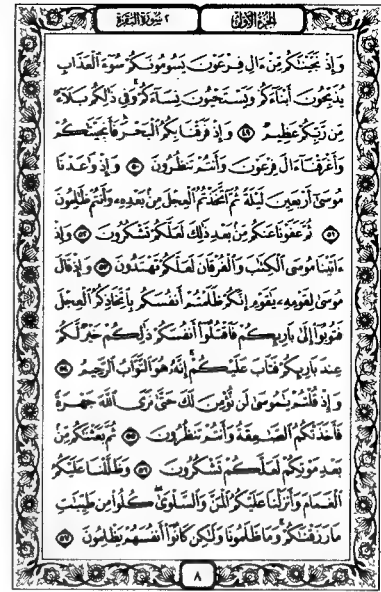 الجزء الأول ٢ سورة البقرة
وَإِذْ نَجَّيْنَٰكُم مِّنْ ءَالِ فِرْعَوْنَ يَسُومُونَكُمْ سُوٓءَ ٱلْعَذَابِ
يُذَبِّحُونَ أَبْنَآءَكُمْ وَيَسْتَحْيُونَ نِسَآءَكُمْ ۚ وَفِى ذَٰلِكُم بَلَآءٌ
مِّن رَّبِّكُمْ عَظِيمٌ ٤٩ وَإِذْ فَرَقْنَا بِكُمُ ٱلْبَحْرَ فَأَنجَيْنَٰكُمْ
وَأَغْرَقْنَآ ءَالَ فِرْعَوْنَ وَأَنتُمْ تَنظُرُونَ ٥٠ وَإِذْ وَٰعَدْنَا
مُوسَىٰٓ أَرْبَعِينَ لَيْلَةً ثُمَّ ٱتَّخَذْتُمُ ٱلْعِجْلَ مِنۢ بَعْدِهِۦ وَأَنتُمْ ظَٰلِمُونَ
٥١ ثُمَّ عَفَوْنَا عَنكُم مِّنۢ بَعْدِ ذَٰلِكَ لَعَلَّكُمْ تَشْكُرُونَ ٥٢ وَإِذْ
ءَاتَيْنَا مُوسَى ٱلْكِتَٰبَ وَٱلْفُرْقَانَ لَعَلَّكُمْ تَهْتَدُونَ ٥٣ وَإِذْ قَالَ
مُوسَىٰ لِقَوْمِهِۦ يَٰقَوْمِ إِنَّكُمْ ظَلَمْتُمْ أَنفُسَكُم بِٱتِّخَاذِكُمُ ٱلْعِجْلَ
فَتُوبُوٓا۟ إِلَىٰ بَارِئِكُمْ فَٱقْتُلُوٓا۟ أَنفُسَكُمْ ذَٰلِكُمْ خَيْرٌ لَّكُمْ
عِندَ بَارِئِكُمْ فَتَابَ عَلَيْكُمْ ۚ إِنَّهُۥ هُوَ ٱلتَّوَّابُ ٱلرَّحِيمُ ٥٤
وَإِذْ قُلْتُمْ يَٰمُوسَىٰ لَن نُّؤْمِنَ لَكَ حَتَّىٰ نَرَى ٱللَّهَ جَهْرَةً
فَأَخَذَتْكُمُ ٱلصَّٰعِقَةُ وَأَنتُمْ تَنظُرُونَ ٥٥ ثُمَّ بَعَثْنَٰكُم مِّنۢ
بَعْدِ مَوْتِكُمْ لَعَلَّكُمْ تَشْكُرُونَ ٥٦ وَظَلَّلْنَا عَلَيْكُمُ
ٱلْغَمَامَ وَأَنزَلْنَا عَلَيْكُمُ ٱلْمَنَّ وَٱلسَّلْوَىٰ ۖ كُلُوا۟ مِن طَيِّبَٰتِ
مَا رَزَقْنَٰكُمْ ۖ وَمَا ظَلَمُونَا وَلَٰكِن كَانُوٓا۟ أَنفُسَهُمْ يَظْلِمُونَ ٥٧
٨